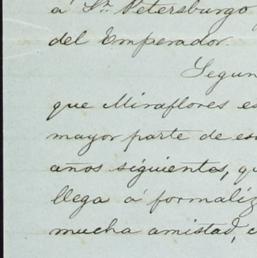 á Sn. Petersburgo
del Emperador.
Segun
que Miraflores es
mayor parte de es
años siguientes, qu
llega á formaliz
mucha amistad, c